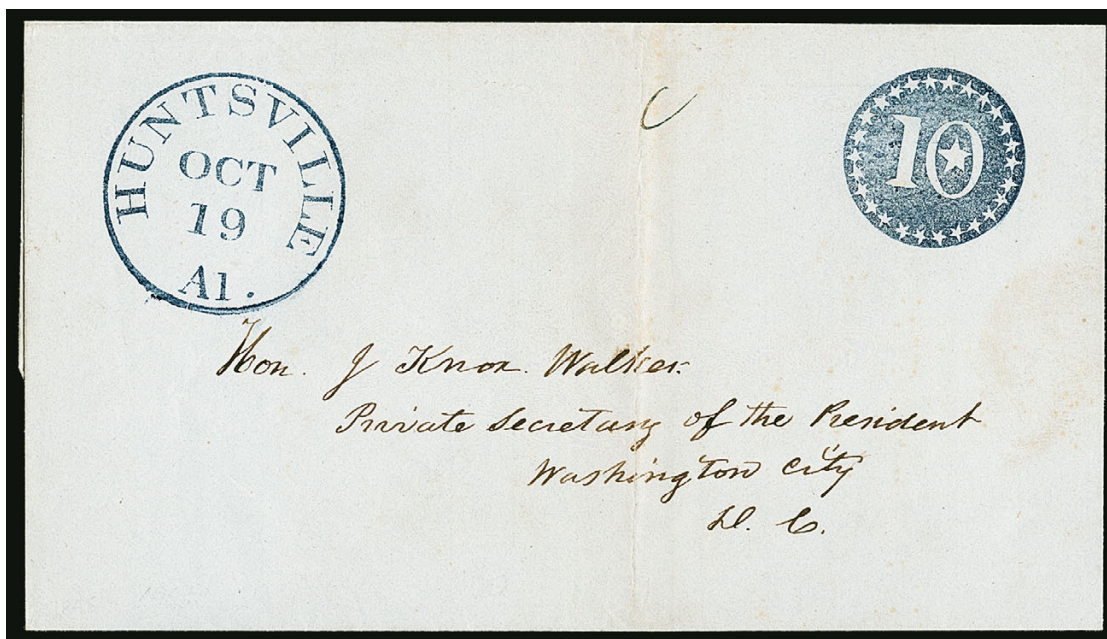 HUNTSVILLE
OCT
19
Al.
10
Hon. J Knox. Walker.
Private Secretary of the President
Washington City
D. C.